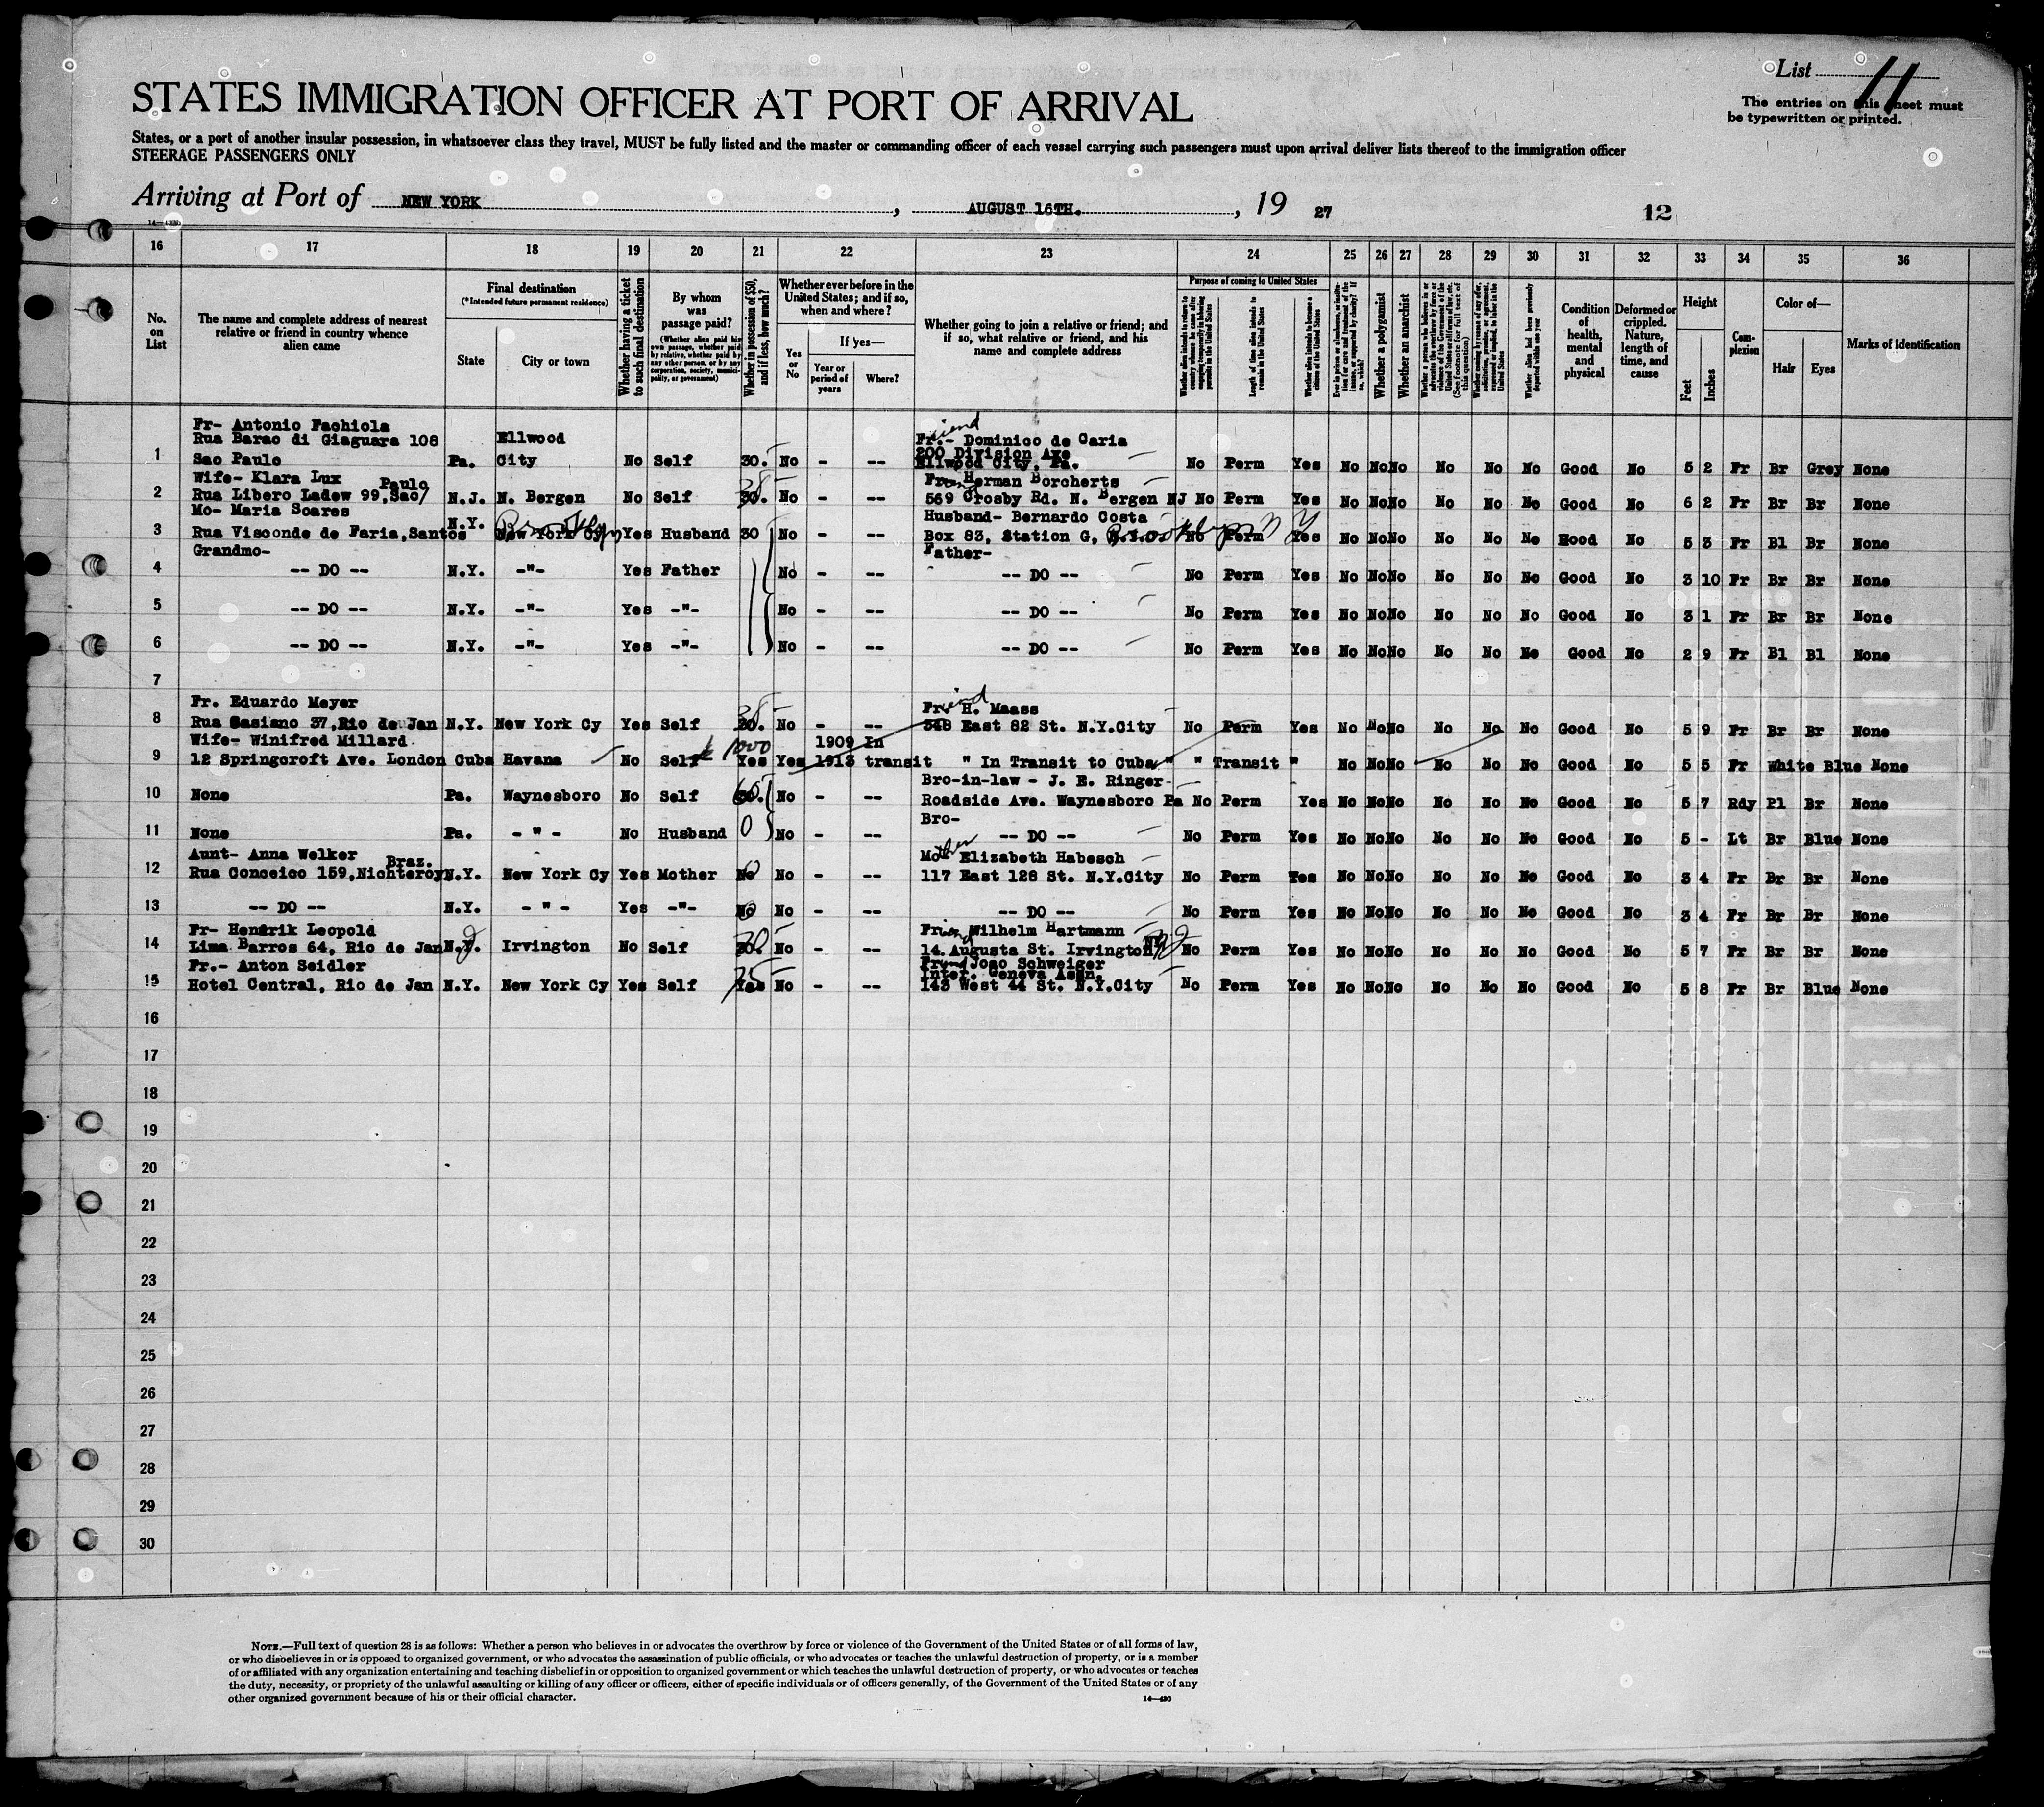 List 11
The entries on this sheet must
be typewritten or printed.
STATES IMMIGRATION OFFICER AT PORT OF ARRIVAL
States, or a port of another insular possession, in whatsoever class they travel, MUST be fully listed and the master or commanding officer of each vessel carrying such passengers must upon arrival deliver lists thereof to the immigration officer
STEERAGE PASSENGERS ONLY
Arriving at Port of NEW YORK, AUGUST 16TH., 19 27 12
16 17 18 19 20 21 22 23 24 25 26 27 28 29 30 31 32 33 34 35 36
No. on List
The name and complete address of nearest relative or friend in country whence alien came
Final destination
(*Intended future permanent residence)
State
City or town
Whether having a ticket to such final destination
By whom was passage paid?
(Whether alien paid his own passage, whether paid by relative, whether paid by any other person, or by any corporation, society, municipality, or government)
Whether in possession of $50, and if less, how much?
Whether ever before in the United States; and if so, when and where?
Yes or No
If yes—
Year or period of years
Where?
Whether going to join a relative or friend; and if so, what relative or friend, and his name and complete address
Purpose of coming to United States
Length of time alien intends to remain in the United States
Whether alien intends to become a citizen of the United States
Whether a polygamist
Whether an anarchist
Whether alien had been previously deported within one year
Condition of health, mental and physical
Deformed or crippled. Nature, length of time, and cause
Height
Feet
Inches
Complexion
Color of—
Hair
Eyes
Marks of identification
Fr- Antonio Fachiola Friend
Rua Barao di Giaguara 108 Ellwood Fr.- Dominico de Caria
200 Division Axe
1 Sao Paulo Pa. City No Self 30. No - -- Ellwood City, Pa. No Perm Yes No No No No No No Good No 5 2 Fr Br Grey None
Wife- Klara Lux Paulo Friend Herman Borcherts
2 Rua Libero Ladew 99, Sao/ N.J. N. Bergen No Self 30. No - -- 569 Crosby Rd. N. Bergen NJ No Perm Yes No No No No No No Good No 6 2 Fr Br Br None
Mo- Maria Soares N.Y. Brooklyn Husband- Bernardo Costa
3 Rua Visconde de Faria, Santos New York Cy Yes Husband 30 No - -- Box 83, Station G, Brooklyn N Y No Perm Yes No No No No No No Good No 5 3 Fr Bl Br None
Grandmo- Father-
4 -- DO -- N.Y. -"- Yes Father No - -- -- DO -- No Perm Yes No No No No No No Good No 3 10 Fr Br Br None
5 -- DO -- N.Y. -"- Yes -"- No - -- -- DO -- No Perm Yes No No No No No No Good No 3 1 Fr Br Br None
6 -- DO -- N.Y. -"- Yes -"- No - -- -- DO -- No Perm Yes No No No No No No Good No 2 9 Fr Bl Bl None
7
Fr. Eduardo Meyer 38 Friend H. Maass
8 Rua Casiano 37, Rio de Jan N.Y. New York Cy Yes Self No - -- 348 East 82 St. N.Y.City No Perm Yes No No No No No No Good No 5 9 Fr Br Br None
Wife- Winifred Millard 1000 1909 In
9 12 Springcroft Ave. London Cuba Havana No Self Yes Yes 1913 transit " In Transit to Cuba " " Transit " No No No No No No Good No 5 5 Fr White Blue None
Bro-in-law - J. E. Ringer
10 None Pa. Waynesboro No Self No - -- Roadside Ave. Waynesboro Pa No Perm Yes No No No No No No Good No 5 7 Rdy Bl Br None
Bro-
11 None Pa. - " - No Husband 0 No - -- -- DO -- No Perm Yes No No No No No No Good No 5 - Lt Br Blue None
Aunt- Anna Welker Braz. Mother Elizabeth Habesch
12 Rua Conceico 159, Nichteroy N.Y. New York Cy Yes Mother No No - -- 117 East 128 St. N.Y.City No Perm Yes No No No No No No Good No 3 4 Fr Br Br None
13 -- DO -- N.Y. - " - Yes -"- No No - -- -- DO -- No Perm Yes No No No No No No Good No 3 4 Fr Br Br None
Fr- Hendrik Leopold Friend Wilhelm Hartmann
14 Lima Barros 64, Rio de Jan N.J. Irvington No Self No - -- 14 Augusta St. Irvington NJ No Perm Yes No No No No No No Good No 5 7 Fr Br Br None
Fr.- Anton Seidler Friend Joao Schweiger
Inter. Geneva Assn.
15 Hotel Central, Rio de Jan N.Y. New York Cy Yes Self Yes No - -- 143 West 44 St. N.Y.City No Perm Yes No No No No No No Good No 5 8 Fr Br Blue None
16
17
18
19
20
21
22
23
24
25
26
27
28
29
30
NOTE.—Full text of question 28 is as follows: Whether a person who believes in or advocates the overthrow by force or violence of the Government of the United States or of all forms of law,
or who disbelieves in or is opposed to organized government, or who advocates the assassination of public officials, or who advocates or teaches the unlawful destruction of property, or is a member
of or affiliated with any organization entertaining and teaching disbelief in or opposition to organized government or which teaches the unlawful destruction of property, or who advocates or teaches
the duty, necessity, or propriety of the unlawful assaulting or killing of any officer or officers, either of specific individuals or of officers generally, of the Government of the United States or of any
other organized government because of his or their official character.
14—430